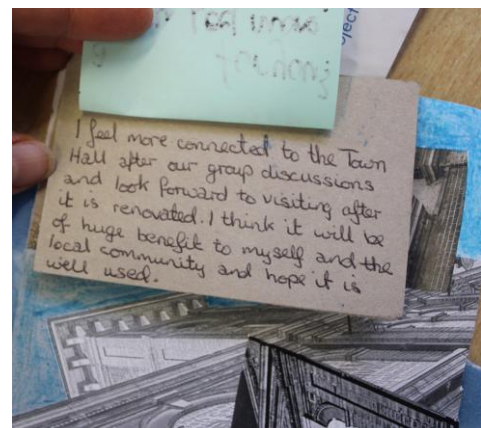 oject
I feel more connected to the Town
Hall after our group discussions
and look forward to visiting after
it is renovated. I think it will be
of huge benefit to myself and the
local community and hope it is
well used.